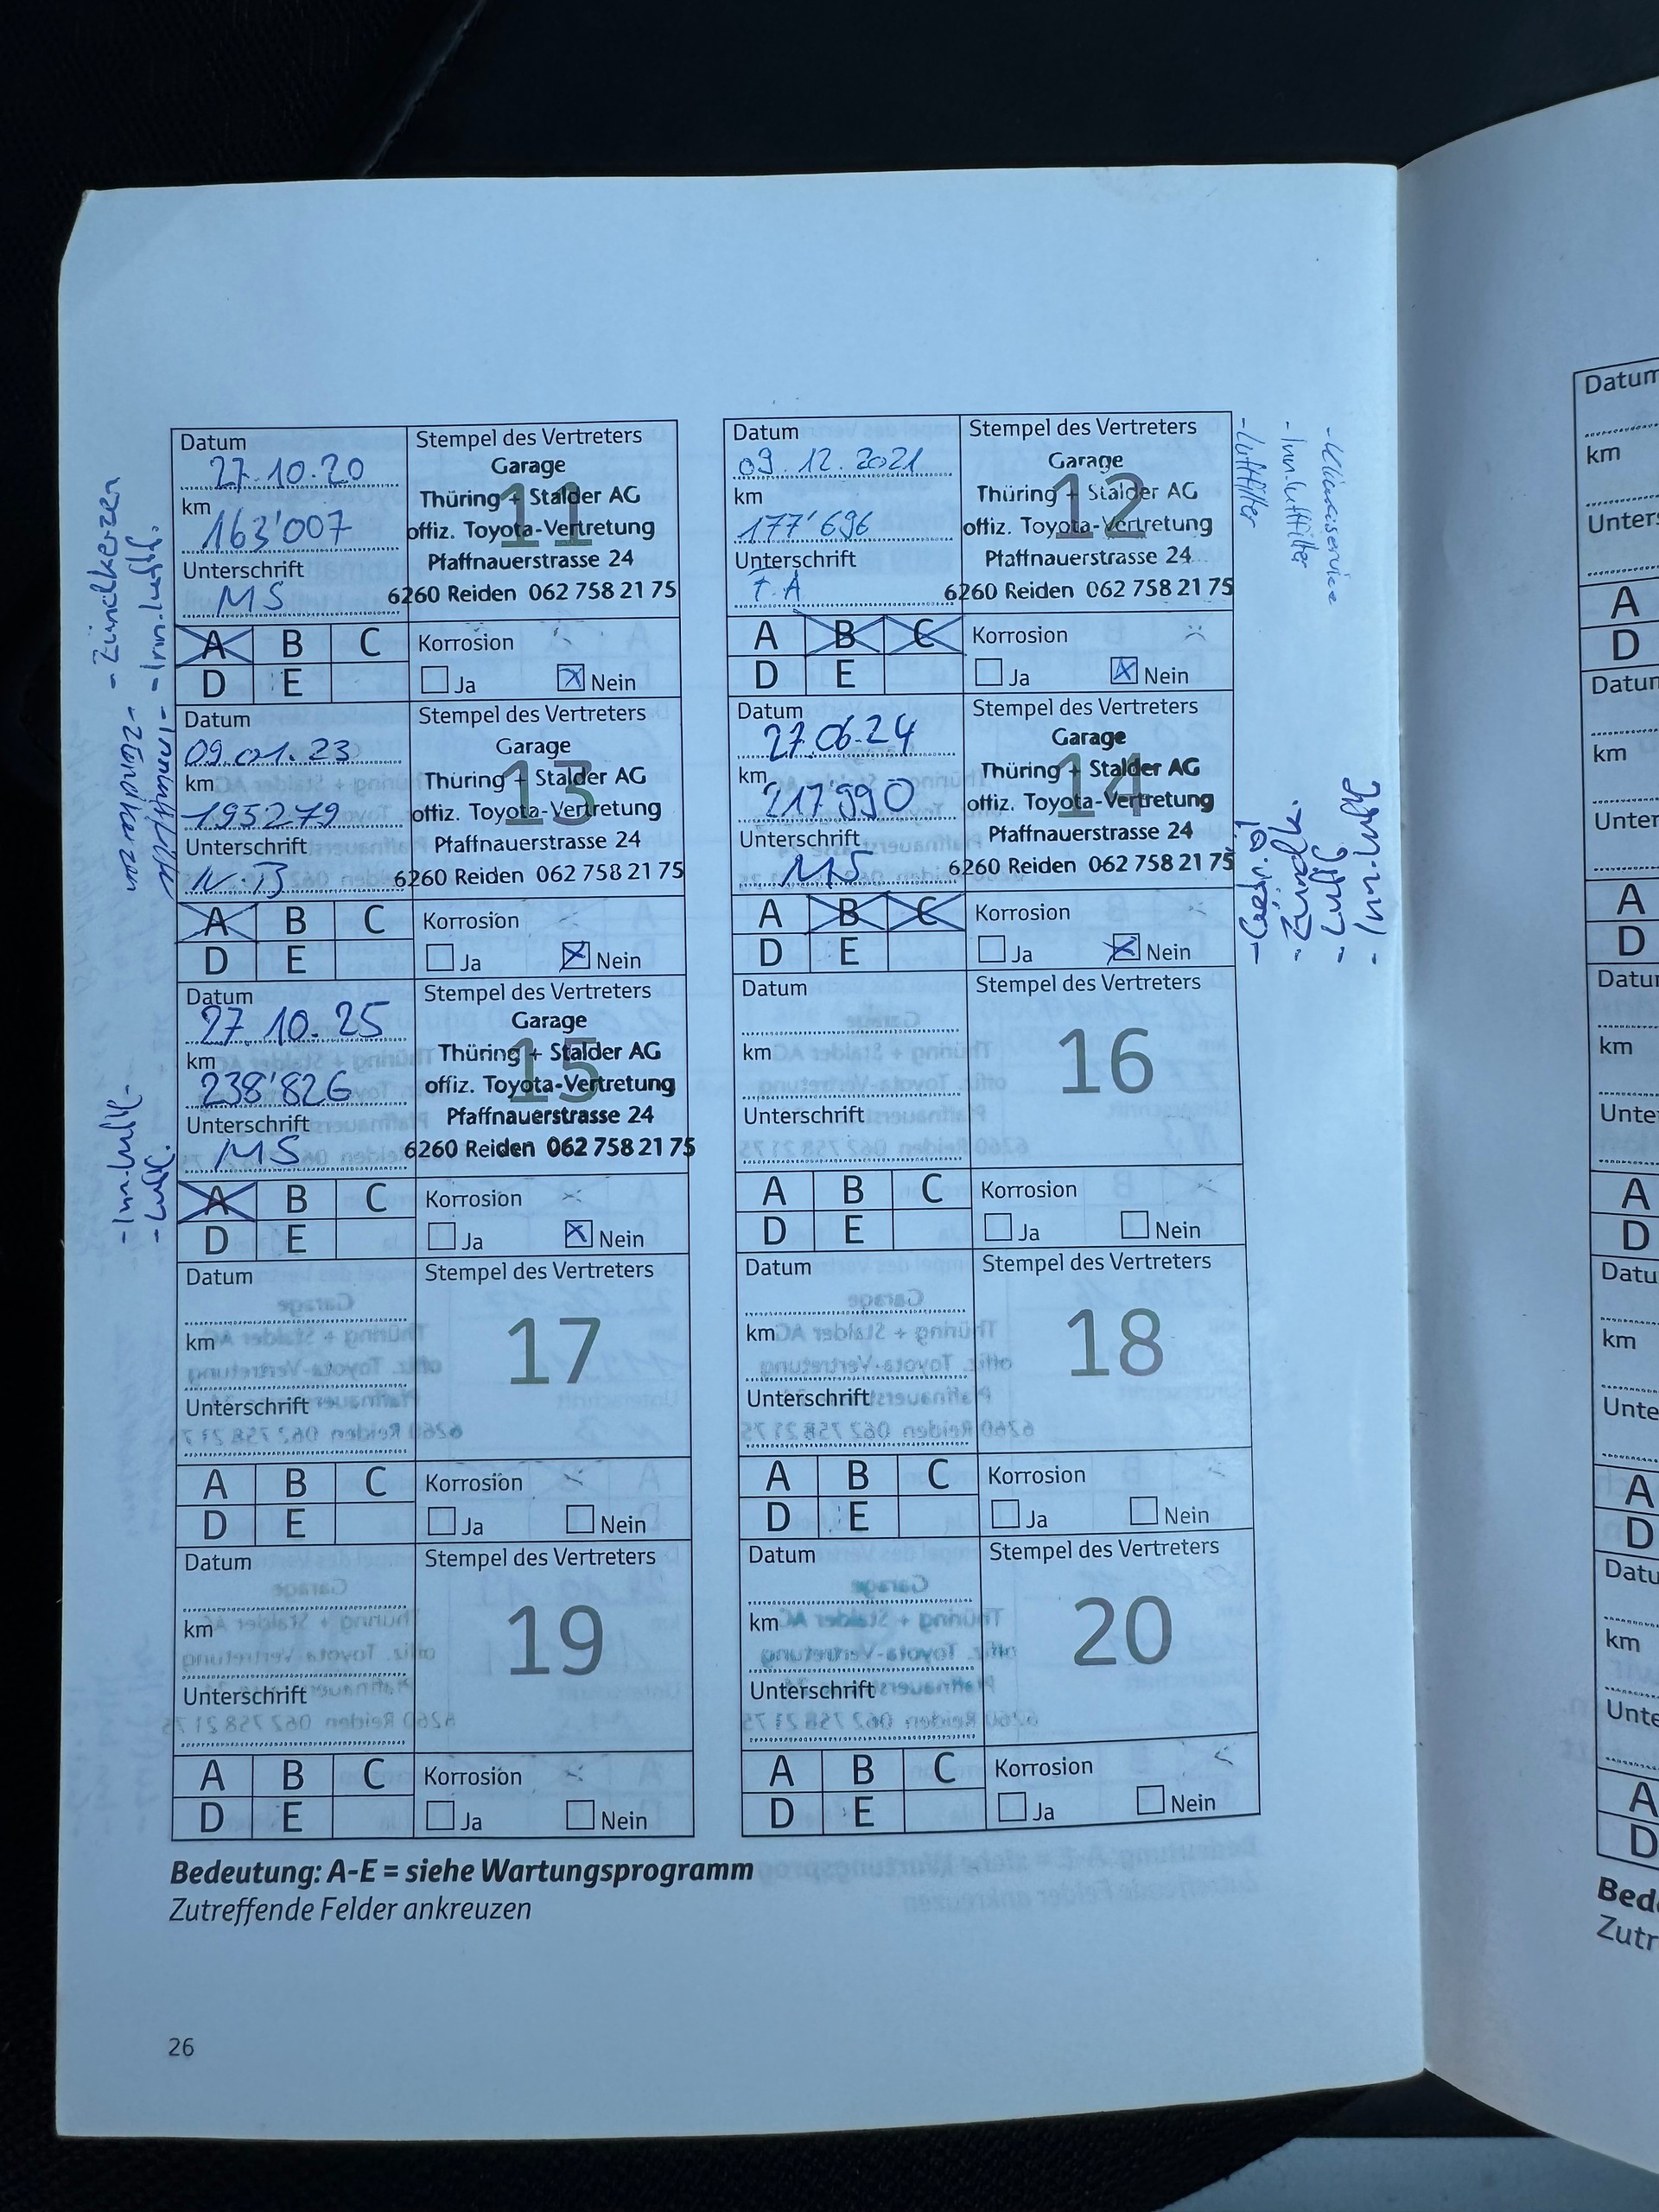 Datum
27.10.20
km
163'007
Unterschrift
MS
Stempel des Vertreters
11
Garage
Thüring + Stalder AG
offiz. Toyota-Vertretung
Pfaffnauerstrasse 24
6260 Reiden 062 758 21 75
A B C
D E
Korrosion
Ja Nein
- Zündkerzen
- Inn.luftf.
Datum
09.12.2021
km
177'696
Unterschrift
T.A
Stempel des Vertreters
12
Garage
Thüring + Stalder AG
offiz. Toyota-Vertretung
Pfaffnauerstrasse 24
6260 Reiden 062 758 21 75
A B C
D E
Korrosion
Ja Nein
- Luftfilter
- Inn.luftfilter
- Klimaservice
Datum
09.01.23
km
195279
Unterschrift
N.B
Stempel des Vertreters
13
Garage
Thüring + Stalder AG
offiz. Toyota-Vertretung
Pfaffnauerstrasse 24
6260 Reiden 062 758 21 75
A B C
D E
Korrosion
Ja Nein
Datum
27.06.24
km
217'990
Unterschrift
MS
Stempel des Vertreters
14
Garage
Thüring + Stalder AG
offiz. Toyota-Vertretung
Pfaffnauerstrasse 24
6260 Reiden 062 758 21 75
A B C
D E
Korrosion
Ja Nein
- Zündk.
- Luftf.
- Inn.luftf
Datum
27.10.25
km
238'826
Unterschrift
MS
Stempel des Vertreters
15
Garage
Thüring + Stalder AG
offiz. Toyota-Vertretung
Pfaffnauerstrasse 24
6260 Reiden 062 758 21 75
A B C
D E
Korrosion
Ja Nein
- Inn.luftf.
- Luftf.
Datum
km
Unterschrift
Stempel des Vertreters
16
A B C
D E
Korrosion
Ja Nein
Datum
km
Unterschrift
Stempel des Vertreters
17
A B C
D E
Korrosion
Ja Nein
Datum
km
Unterschrift
Stempel des Vertreters
18
A B C
D E
Korrosion
Ja Nein
Datum
km
Unterschrift
Stempel des Vertreters
19
A B C
D E
Korrosion
Ja Nein
Datum
km
Unterschrift
Stempel des Vertreters
20
A B C
D E
Korrosion
Ja Nein
Bedeutung: A-E = siehe Wartungsprogramm
Zutreffende Felder ankreuzen
26
Datum
km
A
D
km
A
D
km
A
D
km
A
D
km
A
D